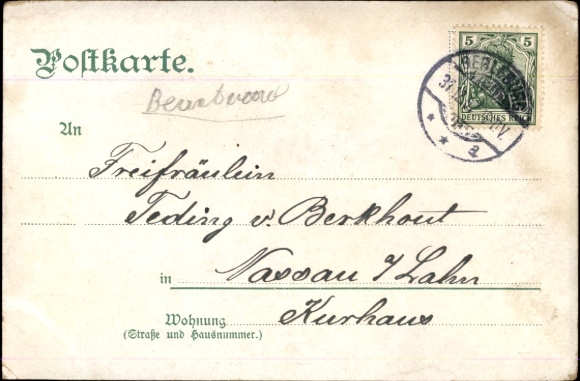 Postkarte.
5 5
DEUTSCHES REICH
An
Freifräulein
Teding v. Berkhout
in Nassau a/Lahn
Wohnung Kurhaus
(Straße und Hausnummer.)